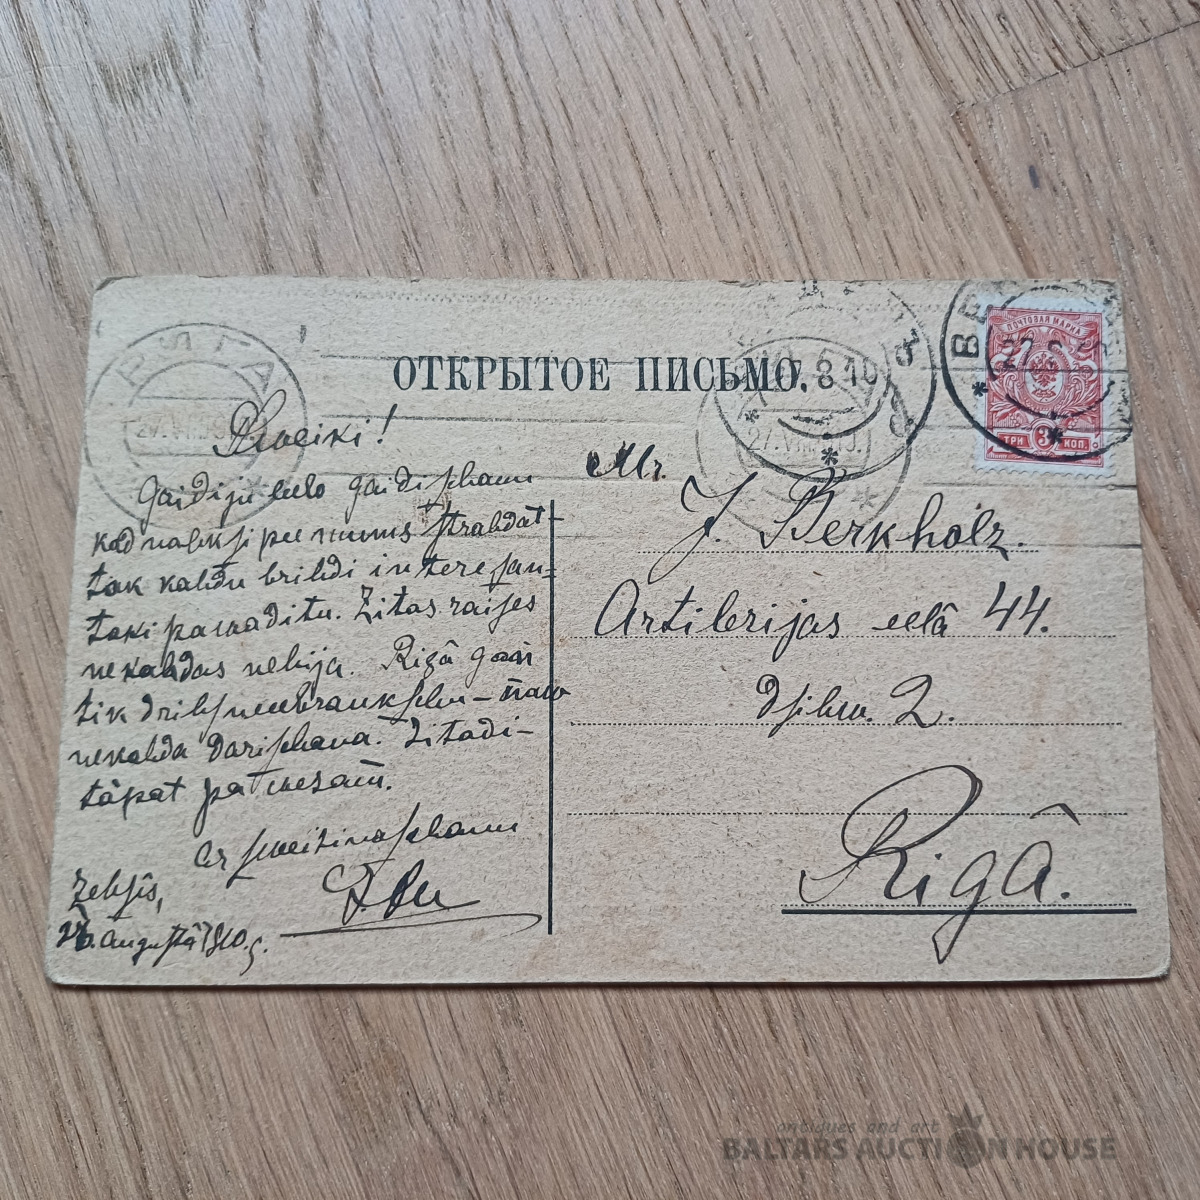 ОТКРЫТОЕ ПИСЬМО.
РИГА
27.8.10
27.VIII.10.
ТРИ 3 КОП.
Sweiki!
Gaidiju leelo gaidischanu
kad nahksi pee mums strahdat-
tak kahdu brihdi interesan=
taki pawaditu. Zitas raises
nekahdas nebija. Rigâ gan
tik drihs neebraukschu - naw
nekahda darischana. Zitadi-
tâpat pa wezam.
Ar sweizinaschanu
Zehsîs,
26. augustâ 1910. g.
Mr.
J. Berkholz.
Artilerijas eelâ 44.
dsihw. 2.
Rigâ.
antiques and art
BALTARS AUCTION HOUSE